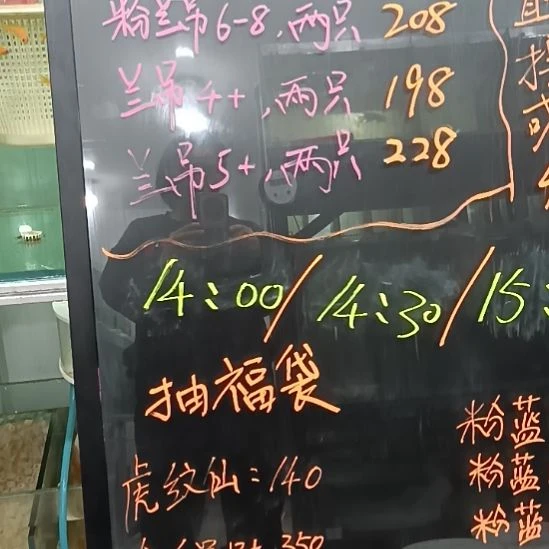 粉兰吊6-8,两只 208
兰吊4+,两只 198
兰吊5+,两只 228
14:00/14:30/15:
抽福袋
虎纹仙:140
350
粉蓝
粉蓝
粉蓝